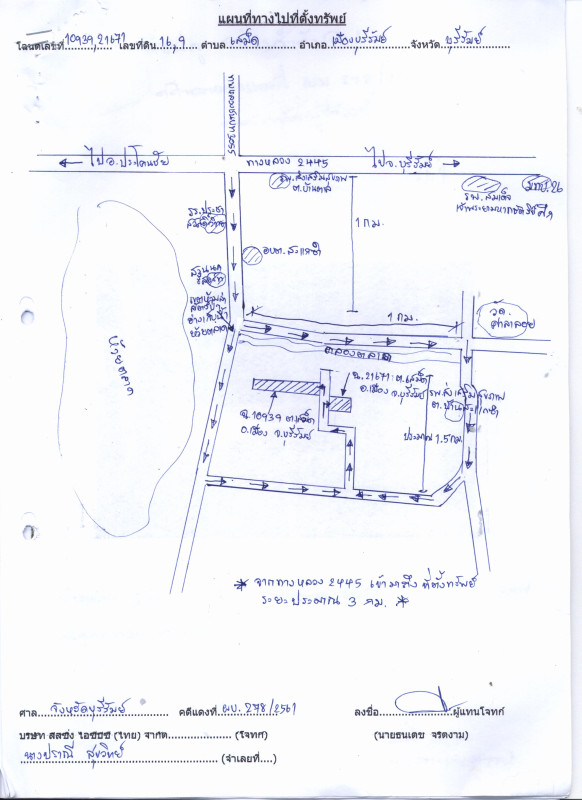 แผนที่ทางไปที่ตั้งทรัพย์
โฉนดเลขที่ 10939,21671 เลขที่ดิน 16,9 ตำบล เสม็ด อำเภอ เมืองบุรีรัมย์ จังหวัด บุรีรัมย์
ไป อ.ประโคนชัย
ทางหลวง 2445
ไป อ.บุรีรัมย์
รพ.ส่งเสริมสุขภาพ
ต.บ้านตลาด
มทบ.26
รพ.สมเด็จ
รร.ประชา
1 กม.
อบต.สะแกซำ
อ่างเก็บน้ำ
ห้วยตลาด
1 กม.
วัด
ศาลาลอย
คลองตลาด
ห้วยตลาด
ฉ.21671 ต.เสม็ด
อ.เมือง จ.บุรีรัมย์
รพ.ส่งเสริมสุขภาพ
ต.บ้านสะแกซำ
ฉ.10939 ต.เสม็ด
อ.เมือง จ.บุรีรัมย์
ประมาณ 1.5 กม.
* จากทางหลวง 2445 เข้ามาถึง ที่ตั้งทรัพย์
ระยะประมาณ 3 กม. *
ศาล จังหวัดบุรีรัมย์ คดีแดงที่ ผบ. 278/2561 ลงชื่อ ผู้แทนโจทก์
บริษัท (ไทย) จำกัด (โจทก์) (นายธนเดช จริตงาม)
นางปราณี สุขวิทย์ (จำเลยที่....)